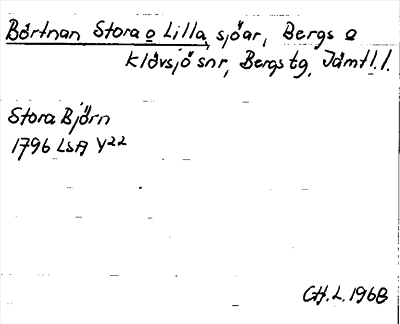 Börtnan Stora o Lilla, sjöar, Bergs o
Klövsjö snr, Bergs tg, Jämtl.l.
Stora Björn
1796 LSA Y22
CH.L. 1968